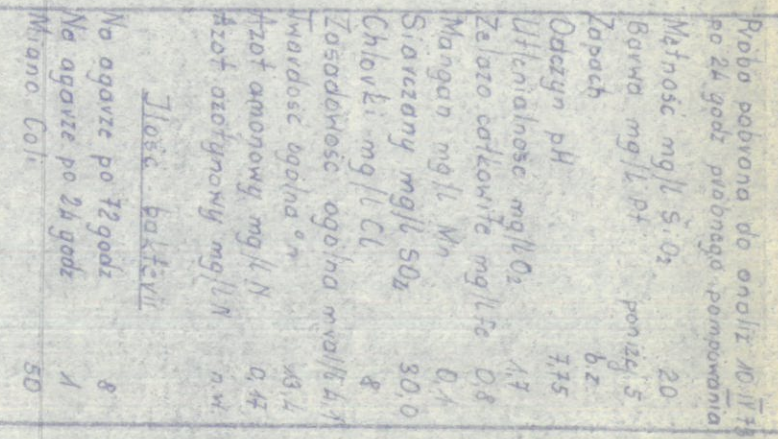 Próba pobrana do analiz 10.IV 73
po 24 godz próbnego pompowania
Mętność mg/l SiO2 20
Barwa mg/l Pt poniżej 5
Zapach b.z.
Odczyn pH 7,75
Utlenialność mg/l O2 1,7
Żelazo całkowite mg/l Fe 0,8
Mangan mg/l Mn 0,1
Siarczany mg/l SO4 30,0
Chlorki mg/l Cl 8
Zasadowość ogólna mval/l 4,1
Twardość ogólna °n 13,4
Azot amonowy mg/l N 0,17
Azot azotynowy mg/l N n.w.
Ilość bakterii
Na agarze po 72 godz 8
Na agarze po 24 godz 1
Miano Coli 50